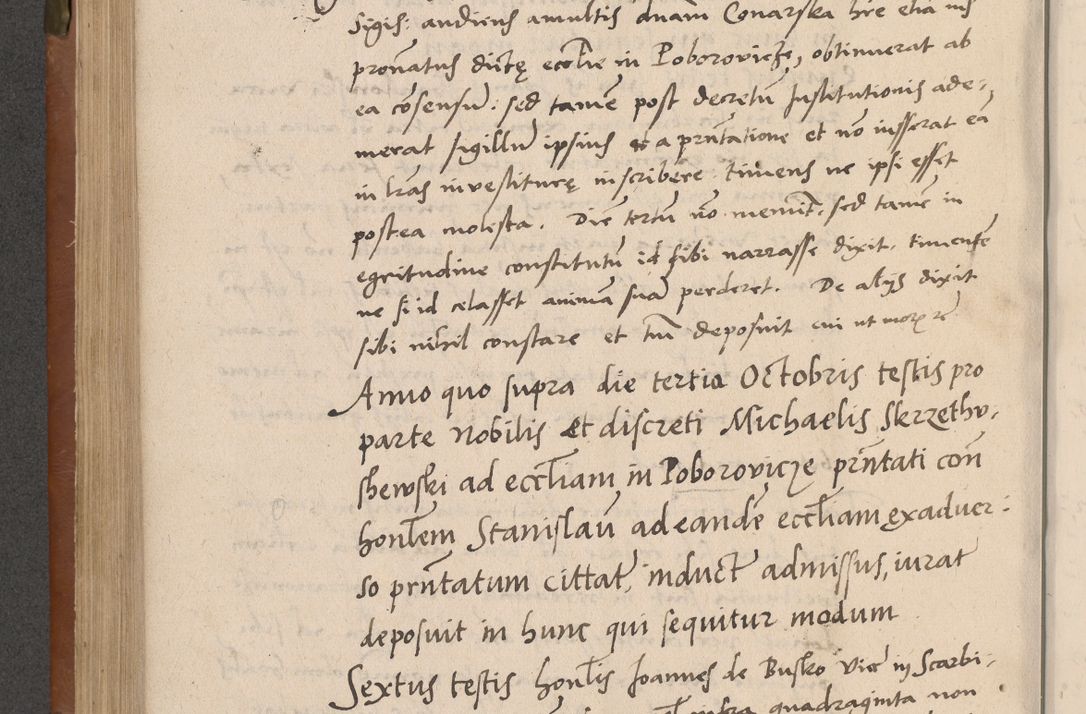 Sigis: audiens a multis dnam Conarska hre etia ius
pronatus dictę eccłie in Poborovicze, obtinuerat ab
ea cõsensũ: sed tamẽ post decretũ Institutionis ade-
merat sigillũ ipsius a prñtatione et nõ insserat eã
in lras investiturę inscribere timens ne ipsi esset
postea molesta. Diẽ tertiũ nõ meminit: sed tamẽ in
egritudine constitutũ id sibi narrasse dixit, timense
ne si id celasset animã suã perderet. De alijs dixit
sibi nihil constare et tm̃ deposuit
Anno quo supra die tertia Octobris testis pro
parte Nobilis et discreti Michaelis Skrzethv-
shewski ad eccłiam in Poborovicze prñtati con̄
honłem Stanislaũ ad eandẽ eccłiam ęx aduer-
so prñtatum cittat, induct admissus, iurat
deposuit in hunc qui sequitur modum
Sextus testis honłis Joannes de Busko vice in Scarbi-
infra quadraginta non